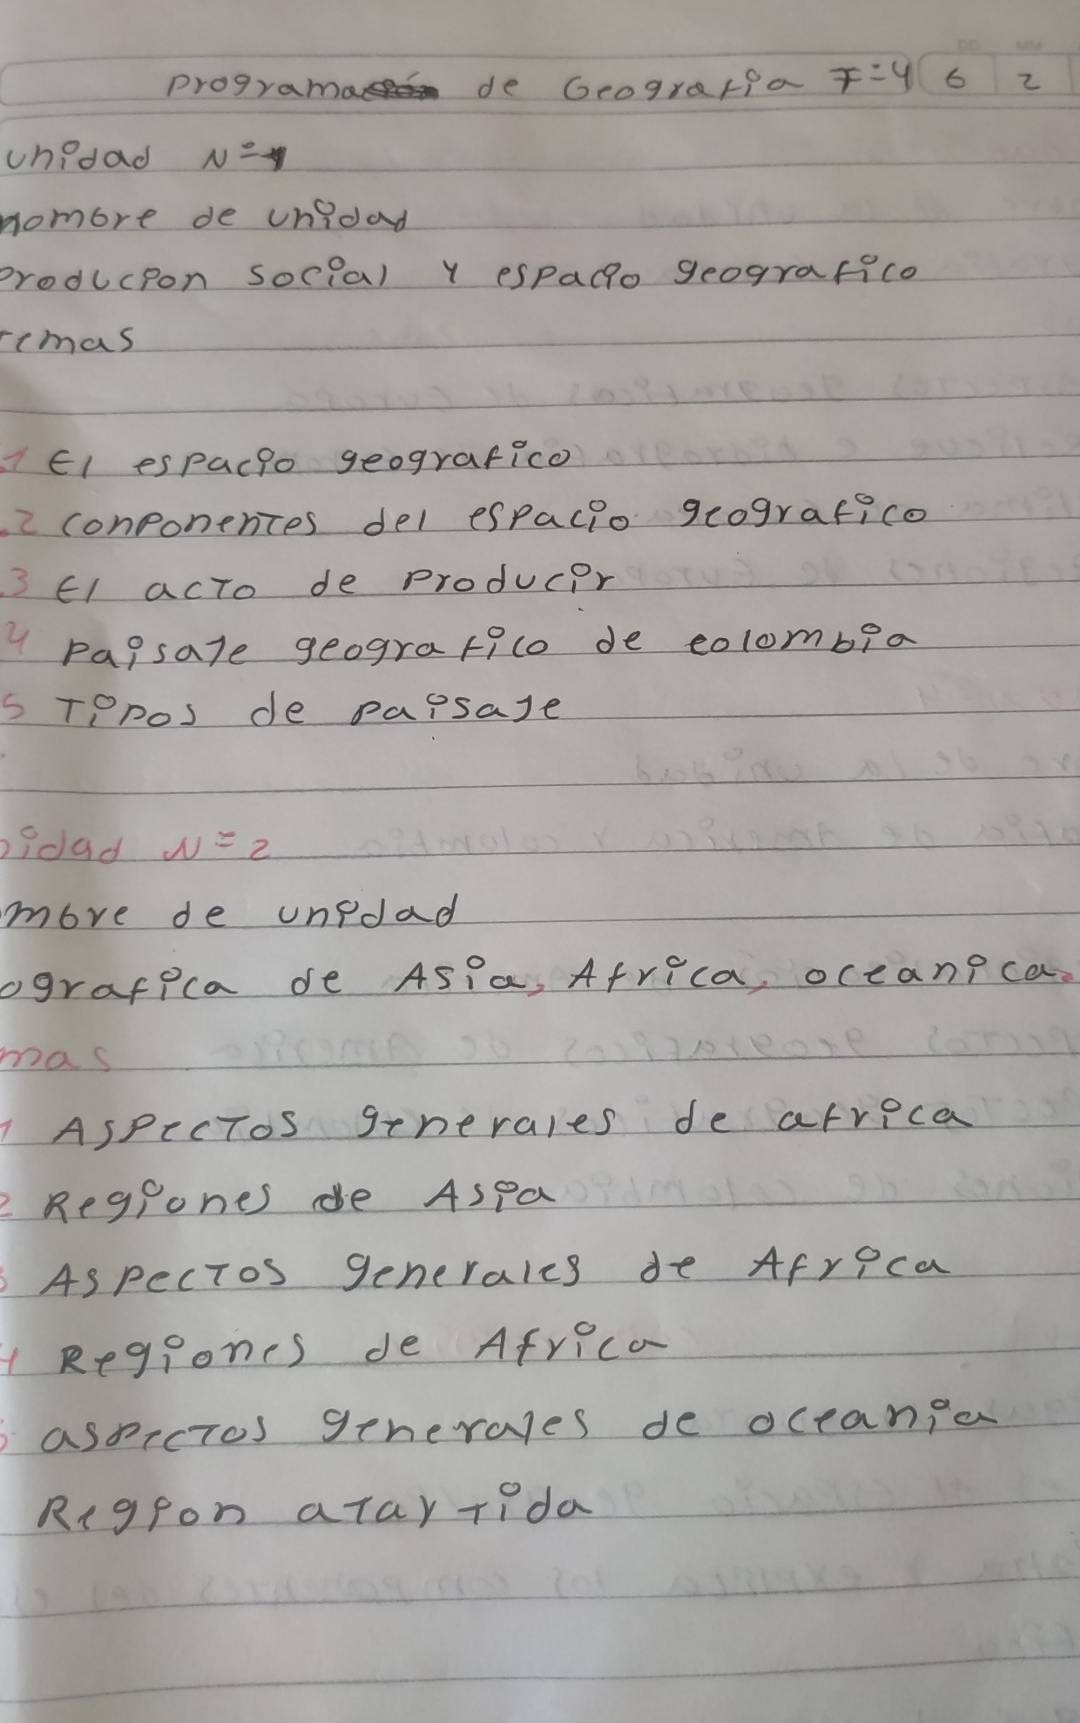 programa de Geografia F=4 6 2
unidad N=1
nombre de unidad
producion social y espacio geografico
temas
1 El espacio geografico
.2 conponentes del espacio geografico
.3 El acto de producir
4 paisaje geografico de colombia
5 Tipos de paisaje
nidad N=2
mbre de unidad
ografica de Asia, Africa, oceanica.
mas
1 Aspectos generales de africa
2 Regiones de Asia
3 Aspectos generales de Africa
4 Regiones de Africa
5 aspectos generales de oceania
Region atartida